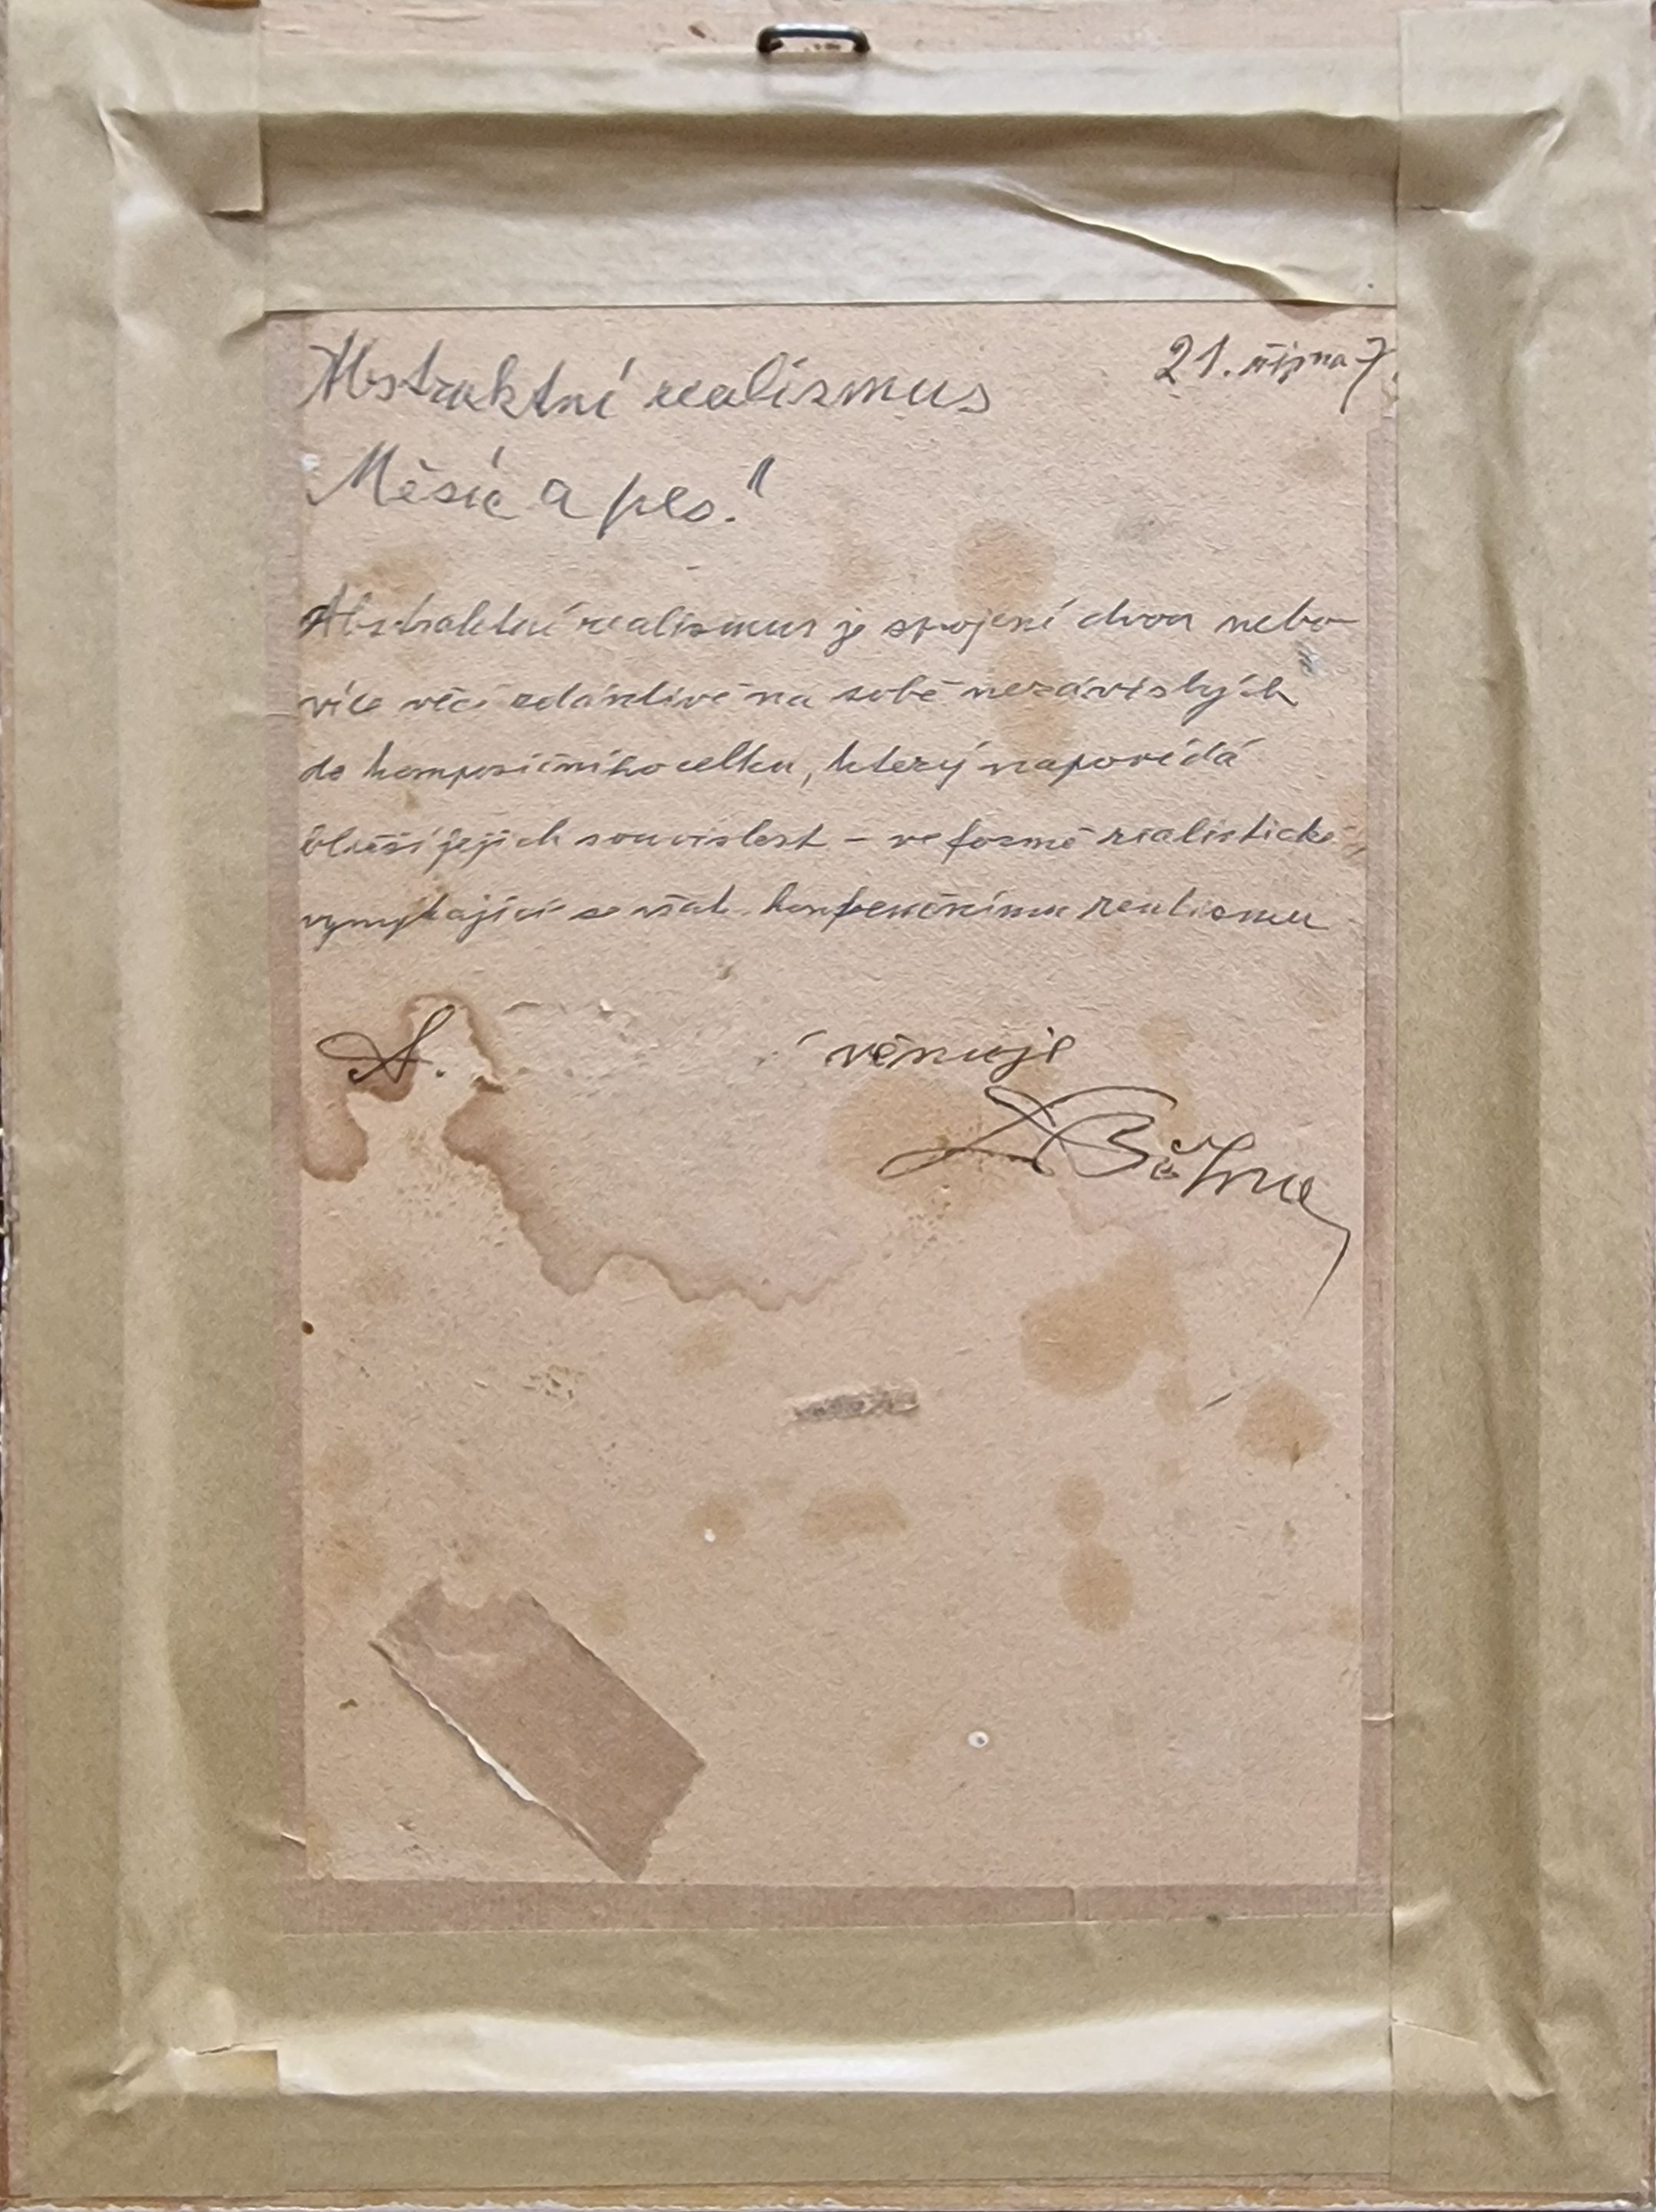 Abstraktní realismus
21. října 7
Měsíc a pes."
Abstraktní realismus je spojení dvou nebo
více věcí zdánlivě na sobě nezávislých
do kompozičního celku, který napovídá
bližší jejich souvislost – ve formě realistické,
vymykající se však konfekčnímu realismu
A. věnuje
Böhm